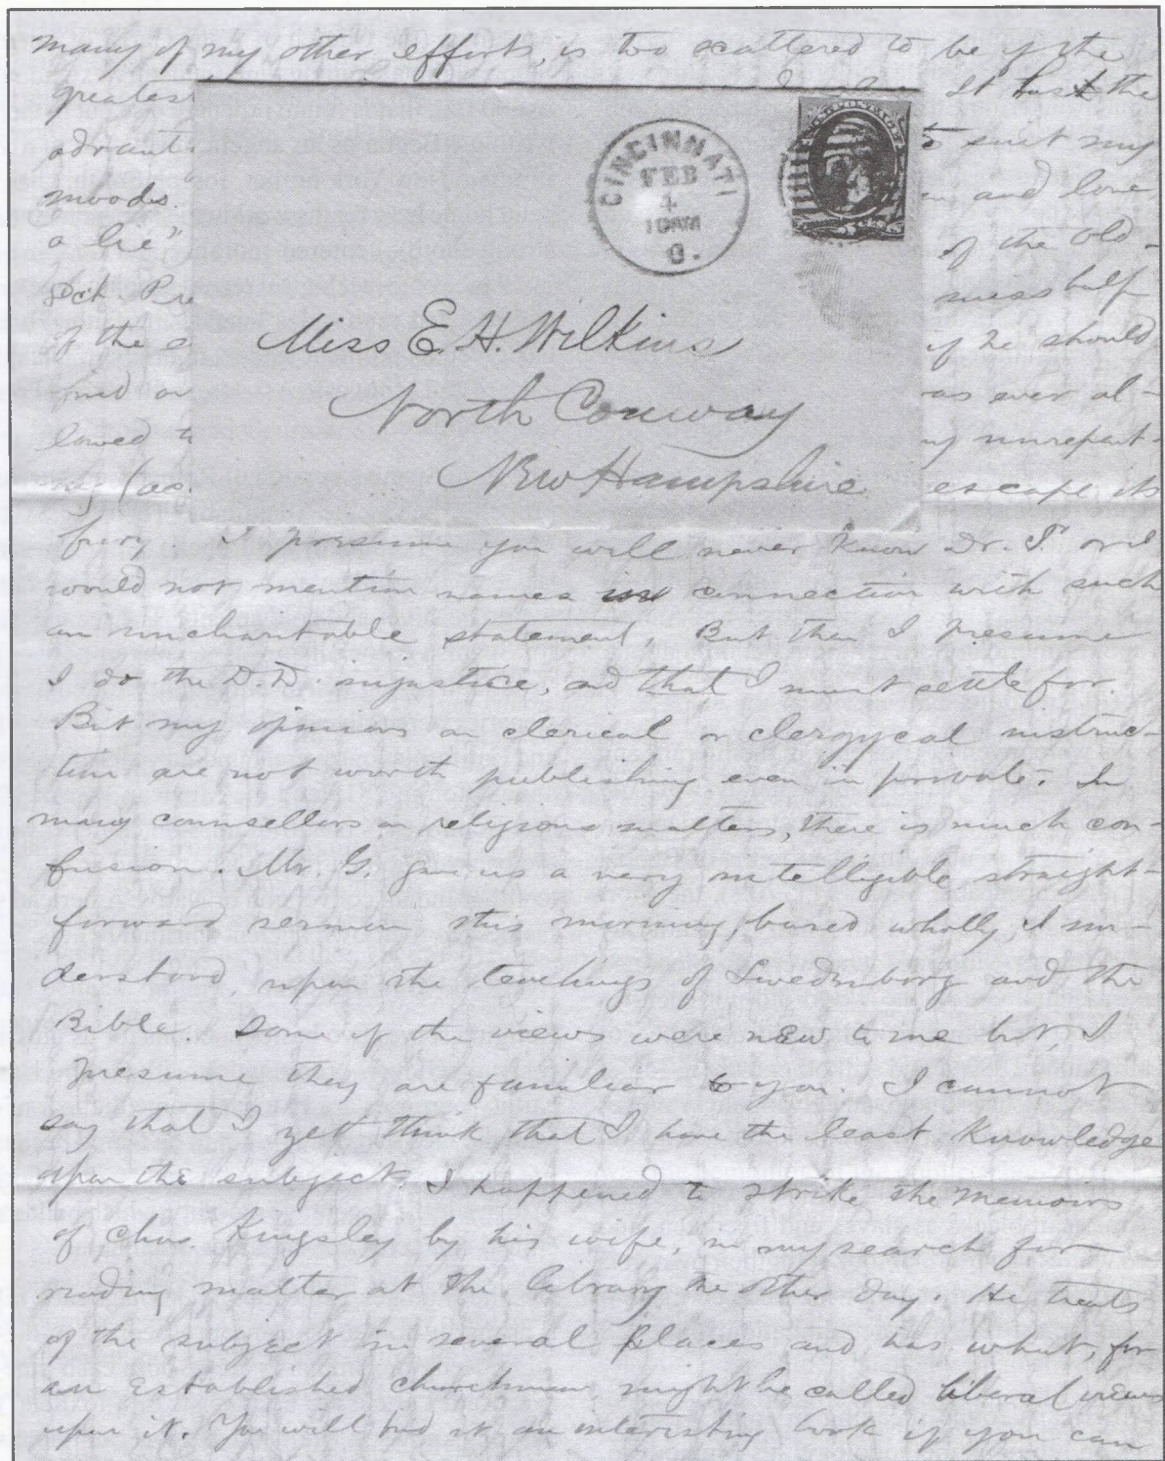 many of my other efforts, is too scattered to be of the
greatest It has the
advant to suit my
moods. and love
a lie" of the old-
Sct. Pre miss half
of the if he should
find ever al-
lowed t unrepent-
ing (as escape its
fury. I presume you will never know Dr. T. or I
would not mention names in connection with such
an uncharitable statement, But then I presume
I do the D.D. injustice, and that I must settle for.
But my opinions on clerical or clergycal instruc-
tion are not worth publishing even in private. In
many counsellors on religious matters, there is much con-
fusion. Mr. G. gave us a very intelligible, straight-
forward sermon this morning, based wholly, I un-
derstood, upon the teachings of Swedenborg and the
Bible. Some of the views were new to me but, I
presume they are familiar to you. I cannot
say that I yet think that I have the least knowledge
upon the subject. I happened to strike the memoirs
of Chas. Kingsley by his wife, in my search for
reading matter at the library the other day. He treats
of the subject in several places and has what, for
an established churchman, might be called liberal views
upon it. You will find it an interesting book if you can
CINCINNATI
FEB
4
10AM
O.
Miss E. H. Wilkins
North Conway
New Hampshire